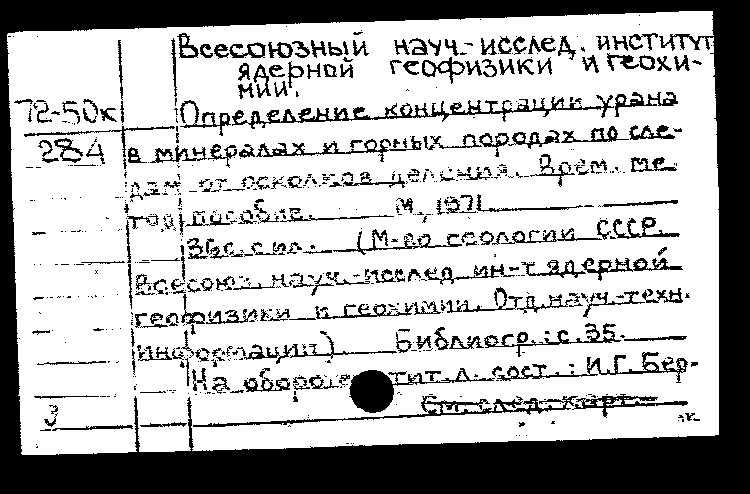 Всесоюзный науч.-исслед. институт
ядерной геофизики и геохи-
мии.
72-50к Определение концентрации урана
284 в минералах и горных породах по сле-
дам от осколков деления. Врем. ме-
тод. пособие. М., 1971.
36с. с ил. (М-во геологии СССР.
Всесоюз. науч.-исслед. ин-т ядерной
геофизики и геохимии. Отд. науч.-техн.
информации). Библиогр.: с. 35.
На обороте тит. л. сост.: И.Г. Бер-
3 См. след. карт.